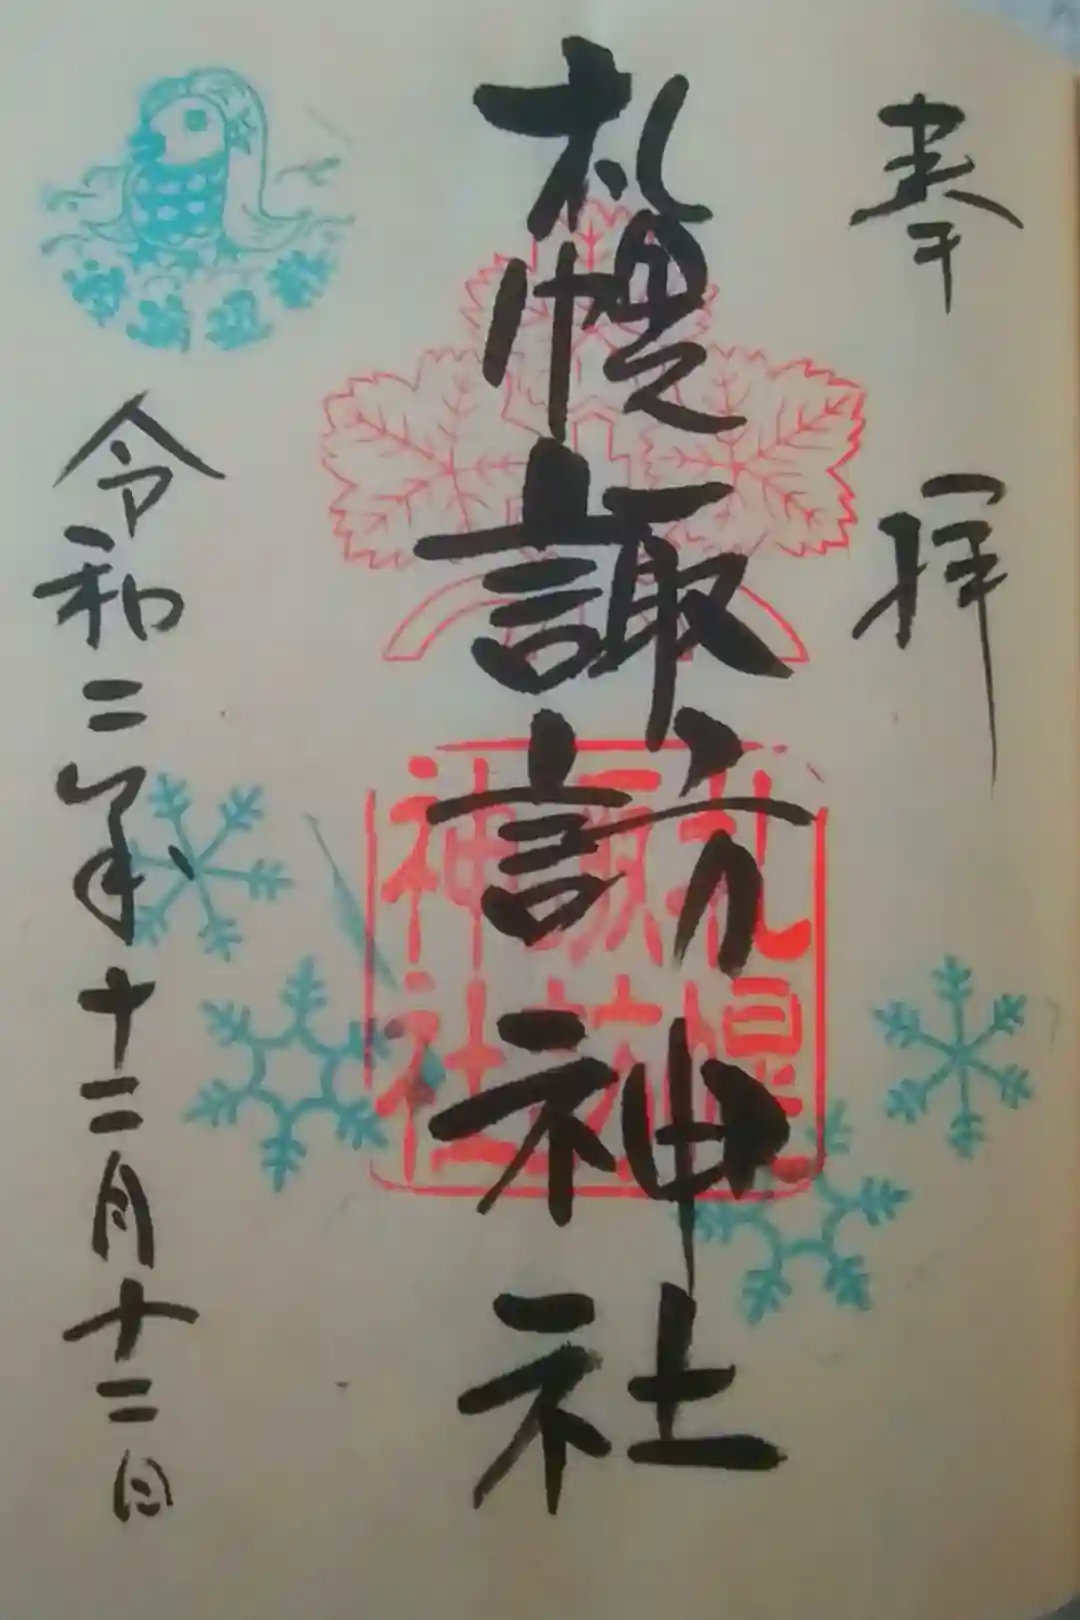 奉拝
札幌諏訪神社
札幌
諏訪
神社
令和二年十二月十二日